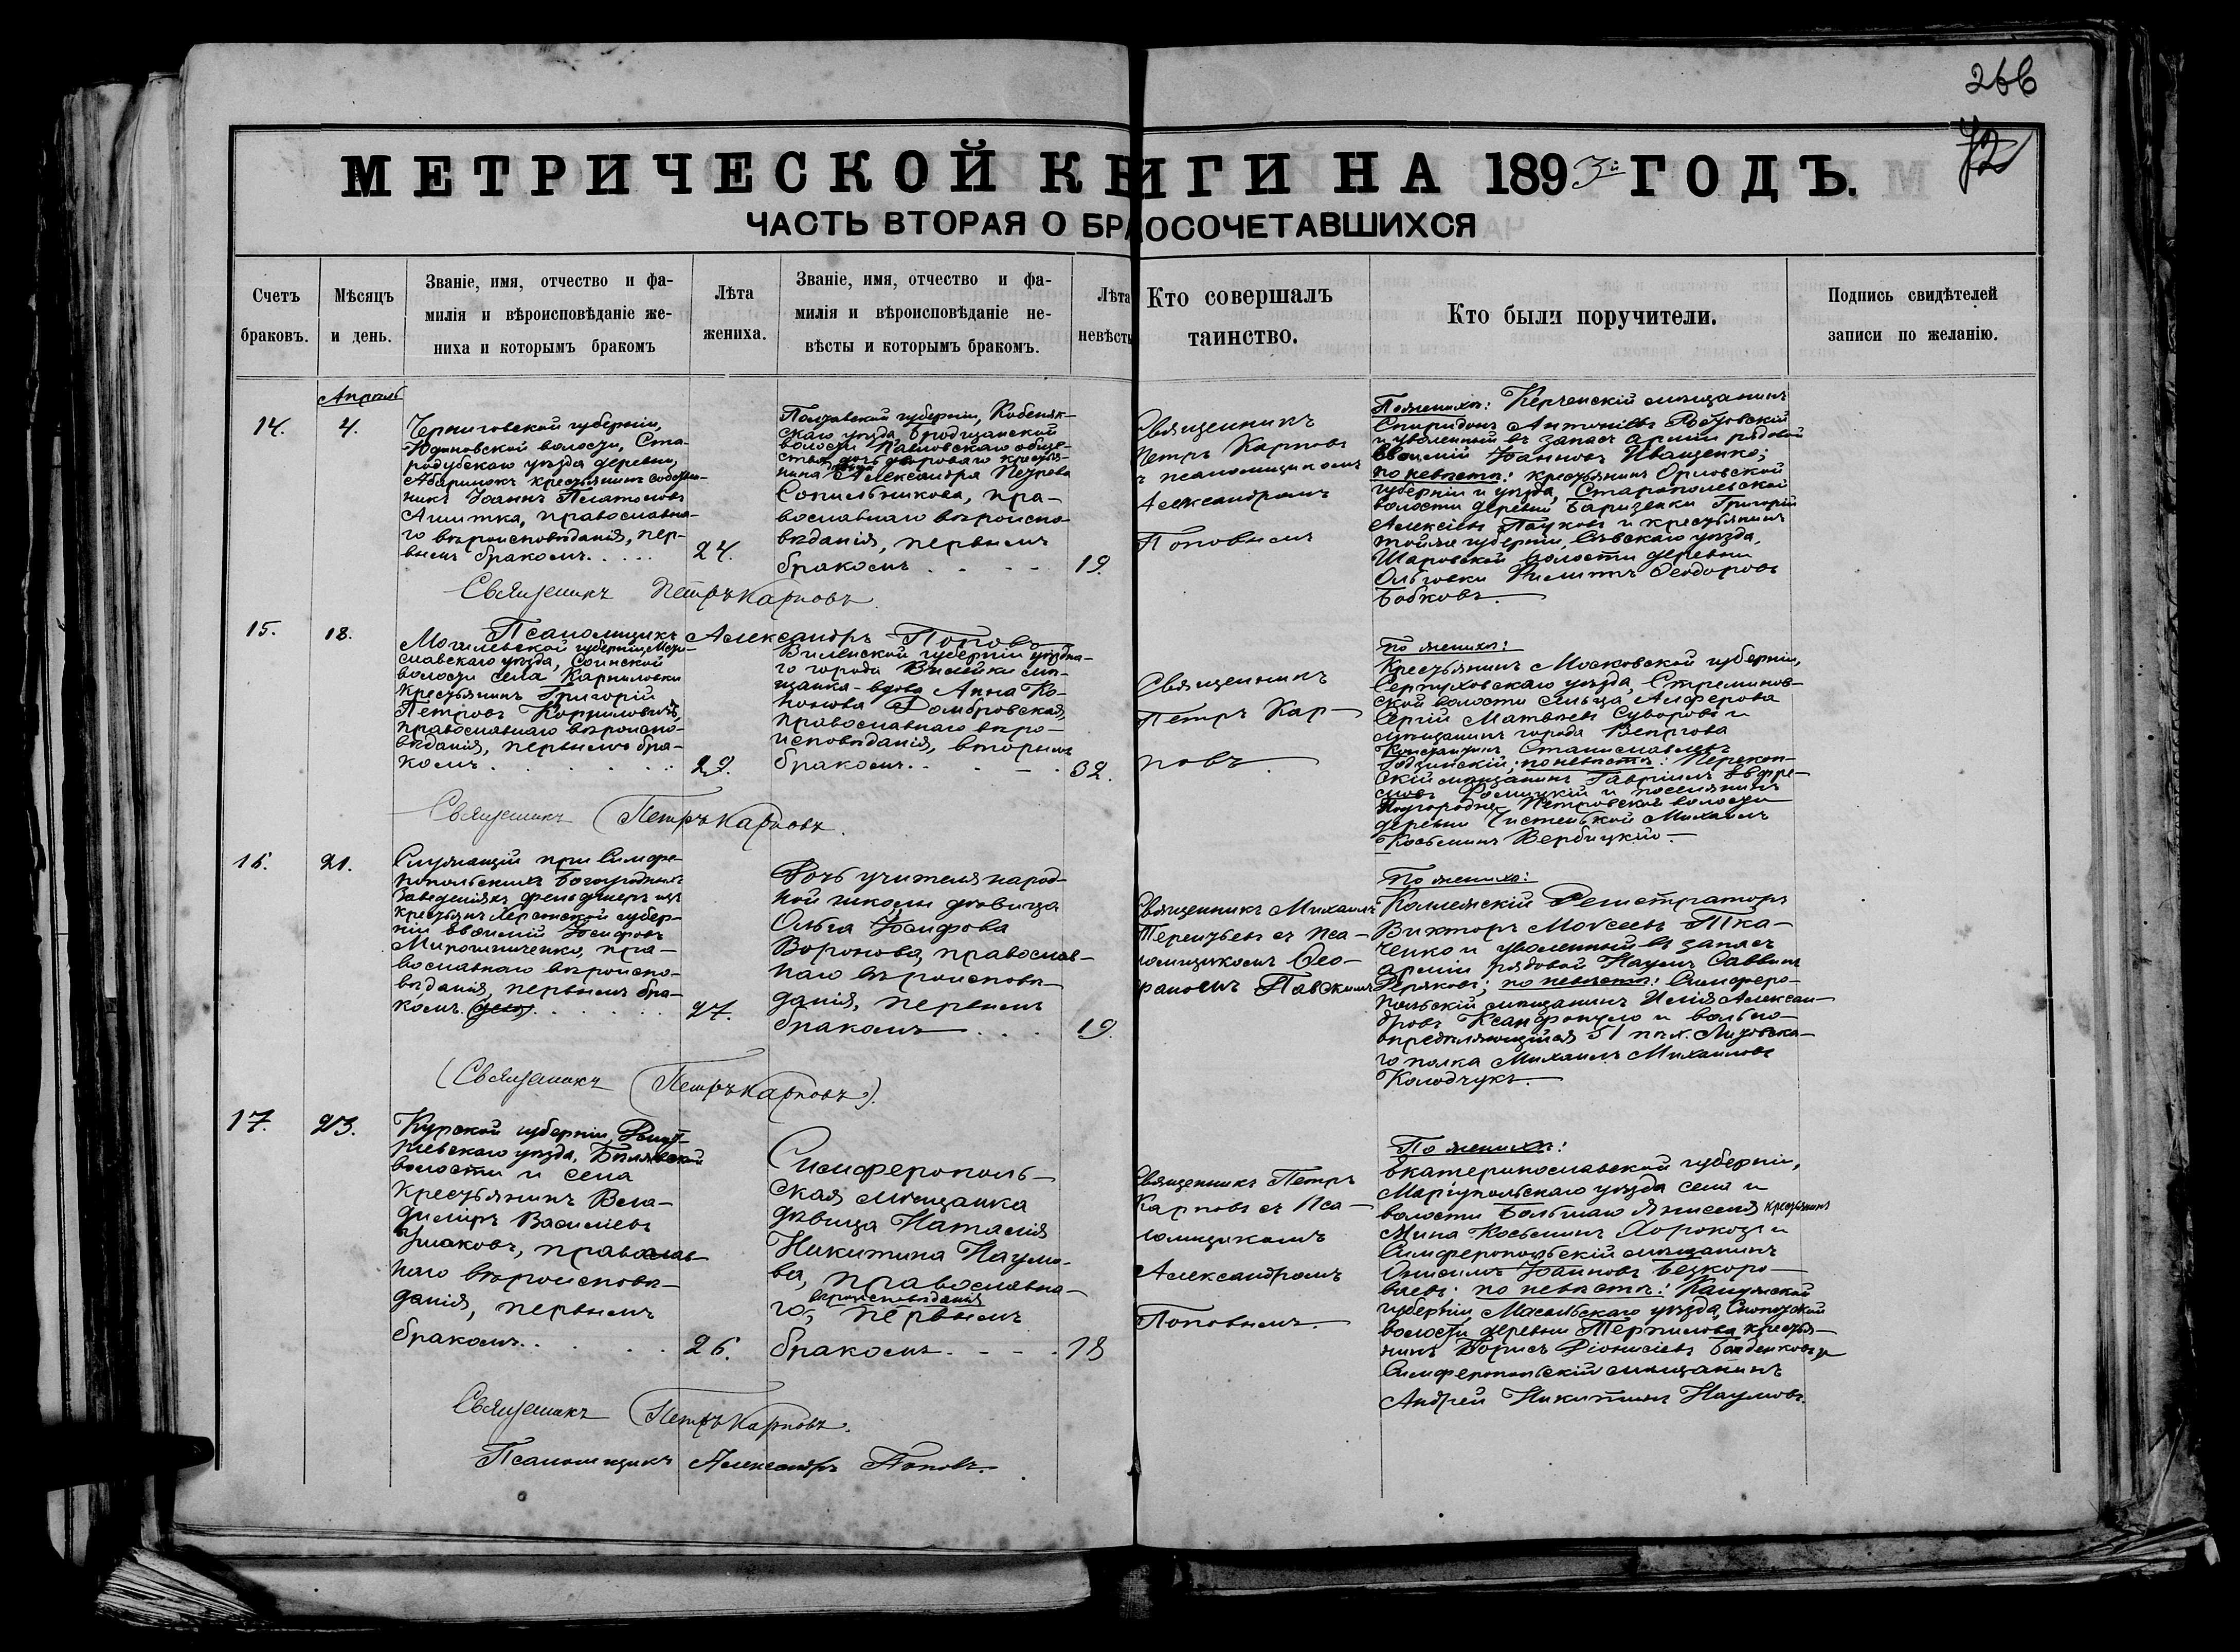 266
72
МЕТРИЧЕСКОЙ КНИГИ НА 1893й ГОДЪ.
ЧАСТЬ ВТОРАЯ О БРАОСОЧЕТАВШИХСЯ
Счетъ
браковъ.
Мѣсяцъ
и день.
Званіе, имя, отчество и фа-
милія и вѣроисповѣданіе же-
ниха и которымъ бракомъ
Лѣта
жениха.
Званіе, имя, отчество и фа-
милія и вѣроисповѣданіе не-
вѣсты и которымъ бракомъ.
Лѣта
невѣсты
Кто совершалъ
таинство.
Кто были поручители.
Подпись свидѣтелей
записи по желанію.
Апрѣль
14.
4.
Черниговской губерніи,
волости, Ста-
родубскаго уѣзда деревни
крестьянинъ
Іоаннъ Платоновъ
православна-
го вѣроисповѣданія, пер-
вымъ бракомъ.
24.
Полтавской губерніи, Кобеляк-
скаго уѣзда, Бродщанской
волости Павловскаго обще-
ства, дочь крестья-
нина Александра Петрова
Сопильникова, пра-
вославнаго вѣроиспо-
вѣданія, первымъ
бракомъ
19.
Священникъ
Петръ Карповъ
съ псаломщикомъ
Александромъ
Поповымъ
По женихѣ: Керченскій мѣщанинъ
Спиридонъ Антоніевъ
и уволенный въ запасъ арміи рядовой
Евѳимій Іоанновъ Иващенко;
по невѣстѣ: крестьянинъ Орловской
губерніи и уѣзда, Старопольской
волости деревни Григорій
Алексіевъ Пауковъ и крестьянинъ
той же губерніи, Сѣвскаго уѣзда,
Шаровской волости деревни
Ольговки Филиппъ Ѳеодоровъ
Бобковъ.
Священникъ Петръ Карповъ.
Псаломщикъ Александръ Поповъ
15.
18.
Могилевской губерніи, Мсти-
славскаго уѣзда, Соинской
волости села Карпиловки
крестьянинъ Григорій
Петровъ
православнаго вѣроиспо-
вѣданія, первымъ бра-
комъ.
29.
Виленской губерніи уѣздна-
го города Вилейки мѣ-
щанка - вдова Анна Ко-
нонова Домбровская,
православнаго вѣро-
исповѣданія, вторымъ
бракомъ.
32.
Священникъ
Петръ Кар-
повъ
По женихѣ:
Крестьянинъ Московской губерніи,
Серпуховскаго уѣзда, Стремилов-
ской волости сельца Алферова
Сергій Матвѣевъ Суворовъ и
мѣщанинъ города Венгрова
Константинъ Станиславовъ
по невѣстѣ: Перекоп-
скій мѣщанинъ Гавріилъ Евфре-
мовъ и поселянинъ
Подгородне-Петровской волости
деревни Чистенькой Михаилъ
Косьминъ Вербицкій.
Священникъ Петръ Карповъ.
16.
21.
Служащій при Симфе-
ропольскихъ Богоугодныхъ
Заведеніяхъ фельдшеръ изъ
крестьянъ Херсонской губер-
ніи Евѳимій Іосифовъ
Мирошниченко, пра-
вославнаго вѣроиспо-
вѣданія, первымъ бра-
комъ.
27.
Дочь учителя народ-
ной школы дѣвица
Ольга Іосифова
Воронова, православ-
наго вѣроисповѣ-
данія, первымъ
бракомъ
19.
Священникъ Михаилъ
Терентьевъ съ пса-
ломщикомъ Ѳео-
фаномъ
По женихѣ:
Коллежскій Регистраторъ
Викторъ Моѵсеевъ Тка-
ченко и уволенный въ запасъ
арміи рядовой Наумъ Саввинъ
по невѣстѣ: Симферо-
польскій мѣщанинъ Илія Алексан-
дровъ Ксанфопуло и вольно-
опредѣляющійся 51 пѣх. Литовска-
го полка Михаилъ Михаиловъ
Колодчукъ.
(Священникъ Петръ Карповъ).
17.
23.
Курской губерніи, Дмит-
ріевскаго уѣзда,
волости и села
крестьянинъ Вла-
диміръ Василіевъ
Ушаковъ, православ-
наго вѣроисповѣ-
данія, первымъ
бракомъ.
26.
Симферополь-
ская мѣщанка
дѣвица Наталія
Никитина Наумо-
ва, православна-
го, вѣроисповѣданія первымъ
бракомъ
18
Священникъ Петръ
Карповъ съ пса-
ломщикомъ
Александромъ
Поповымъ.
По женихѣ:
Екатеринославской губерніи,
Маріупольскаго уѣзда села и
волости Большаго Янисоля крестьянинъ
Мина Косьминъ и
Симферопольскій мѣщанинъ
Онисимъ Іоанновъ Безкоро-
ваевъ: по невѣстѣ: Калужской
губерніи, Масальскаго уѣзда,
волости деревни Терпилова крестья-
нинъ Борисъ Діонисіевъ и
Симферопольскій мѣщанинъ
Андрей Никитинъ Наумовъ.
Священникъ Петръ Карповъ.
Псаломщикъ Александръ Поповъ.